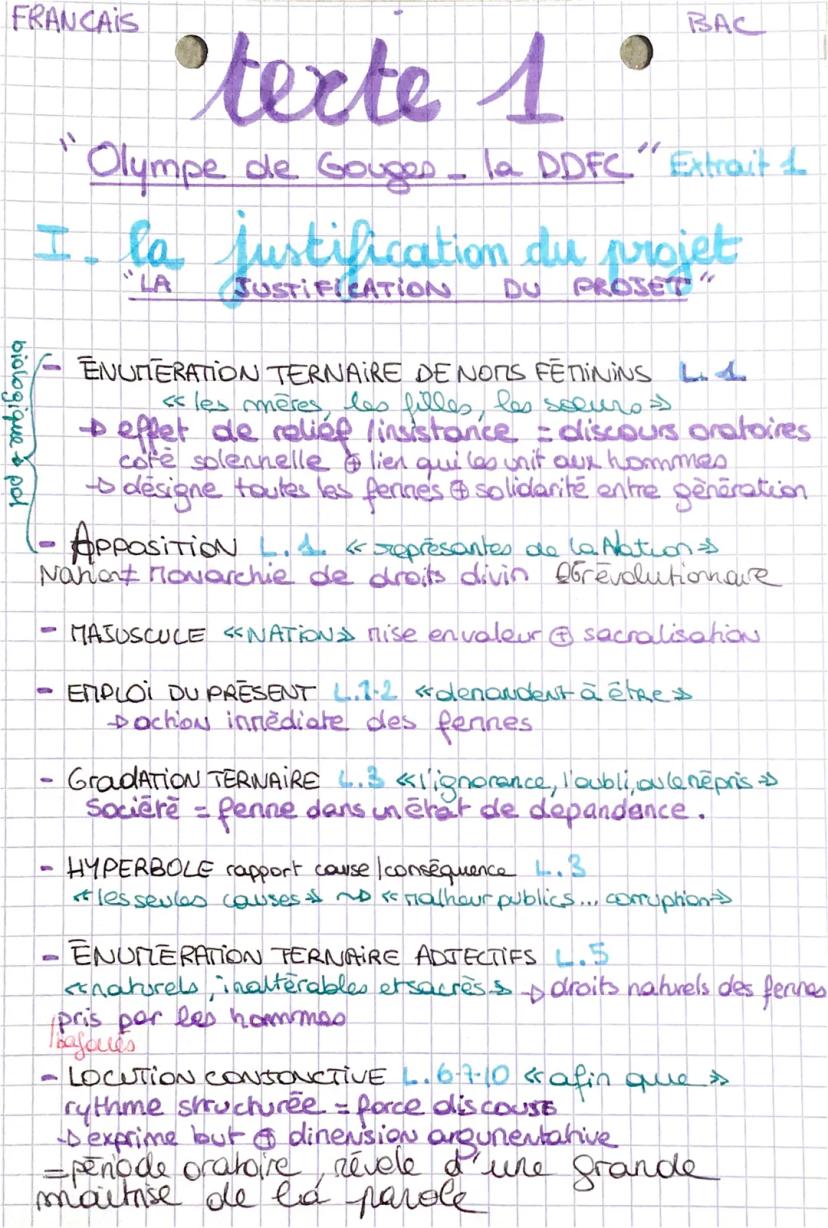 FRANCAIS
BAC
texte 1
"Olympe de Gouges - la DDFC" Extrait 1
I - la justification du projet
"LA JUSTIFICATION DU PROJET"
biologique → pol
- ÉNUMÉRATION TERNAIRE DE NOMS FÉMININS L.1
<< les mères, les filles, les soeurs >>
→ effet de relief / insistance = discours oratoires
coté solennelle ⊕ lien qui les unit aux hommes
→ désigne toutes les femmes ⊕ solidarité entre génération
- APPOSITION L.1. << représantes de la Nation >>
Nation ≠ monarchie de droits divin révolutionnaire
- MAJUSCULE << NATION >> mise en valeur ⊕ sacralisation
- EMPLOI DU PRÉSENT L.1-2 << demandent à être >>
→ action immédiate des femmes
- GRADATION TERNAIRE L.3 << l'ignorance, l'oubli, ou le mépris >>
Société = femme dans un état de dépandance.
- HYPERBOLE rapport cause/conséquence L.3
<< les seules causes >> ~> << malheur publics... corruption >>
- ÉNUMÉRATION TERNAIRE ADJECTIFS L.5
<< naturels, inaltérables et sacrés >> → droits naturels des femmes
pris par les hommes
bafoués
- LOCUTION CONJONCTIVE L.6-7-10 << afin que >>
rythme structurée = force discours
→ exprime but ⊕ dimension argumentative
= période oratoire, révèle d'une grande
maîtrise de la parole